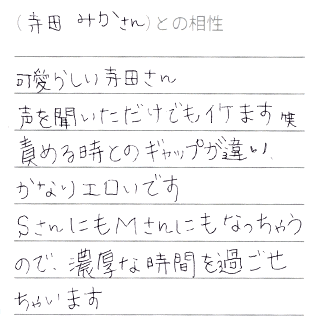 (寺田 みかさん)との相性
可愛らしい寺田さん
声を聞いただけでもイケます笑
責める時とのギャップが違い、
かなりエロいです
SさんにもMさんにもなっちゃう
ので、濃厚な時間を過ごせ
ちゃいます